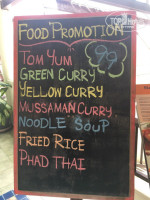 Food Promotion
99
Tom Yum
Green Curry
Yellow Curry
Mussaman Curry
Noodle Soup
Fried Rice
Phad Thai